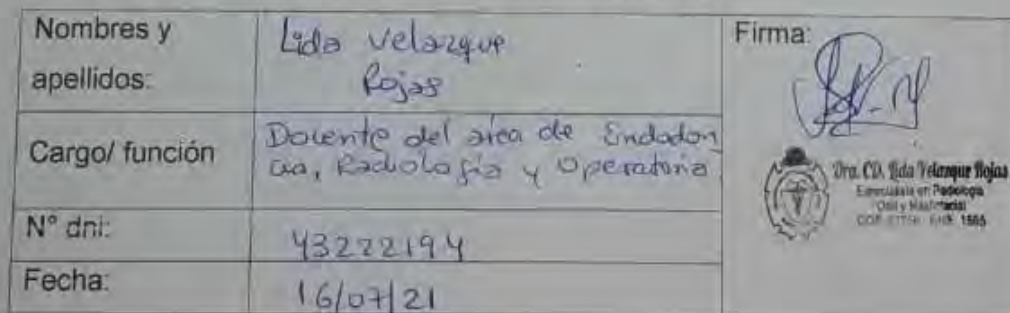 Nombres y
apellidos:
Lida Velazque
Rojas
Firma:
Cargo/ función
Docente del area de Endodon
cia, Radiología y Operatoria
N° dni:
43222194
Fecha:
16/07/21
Dra. CD. Lida Velazque Rojas
Especialista en
Oral y Maxilofacial
COP